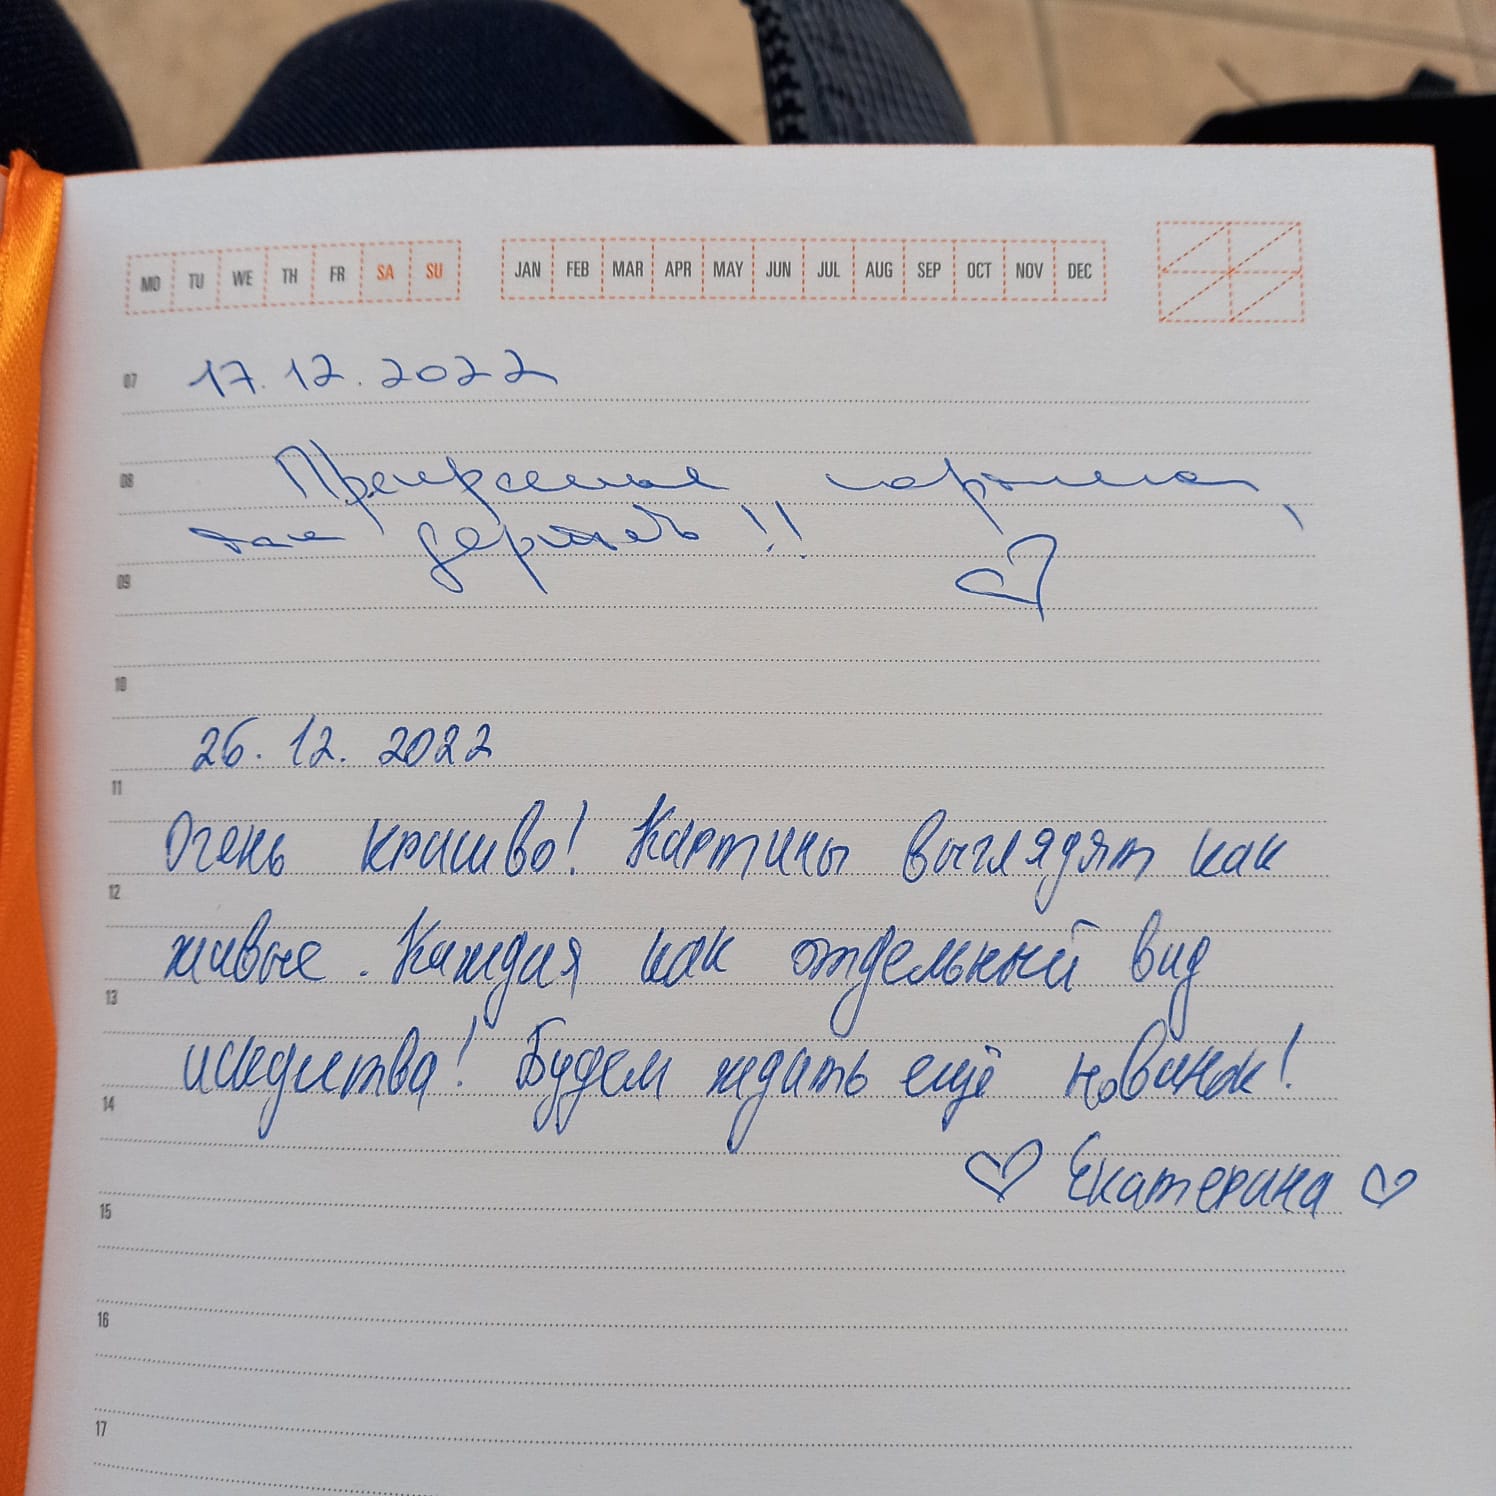 MO TU WE TH FR SA SU JAN FEB MAR APR MAY JUN JUL AUG SEP OCT NOV DEC
07 17.12.2022
08 Прекрасные картины,
так держать!!
09
10
26.12.2022
11
Очень красиво! Картины выглядят как
12
живые. Каждая как отдельный вид
13
искусства! Будем ждать ещё новинок!
14
Екатерина
15
16
17